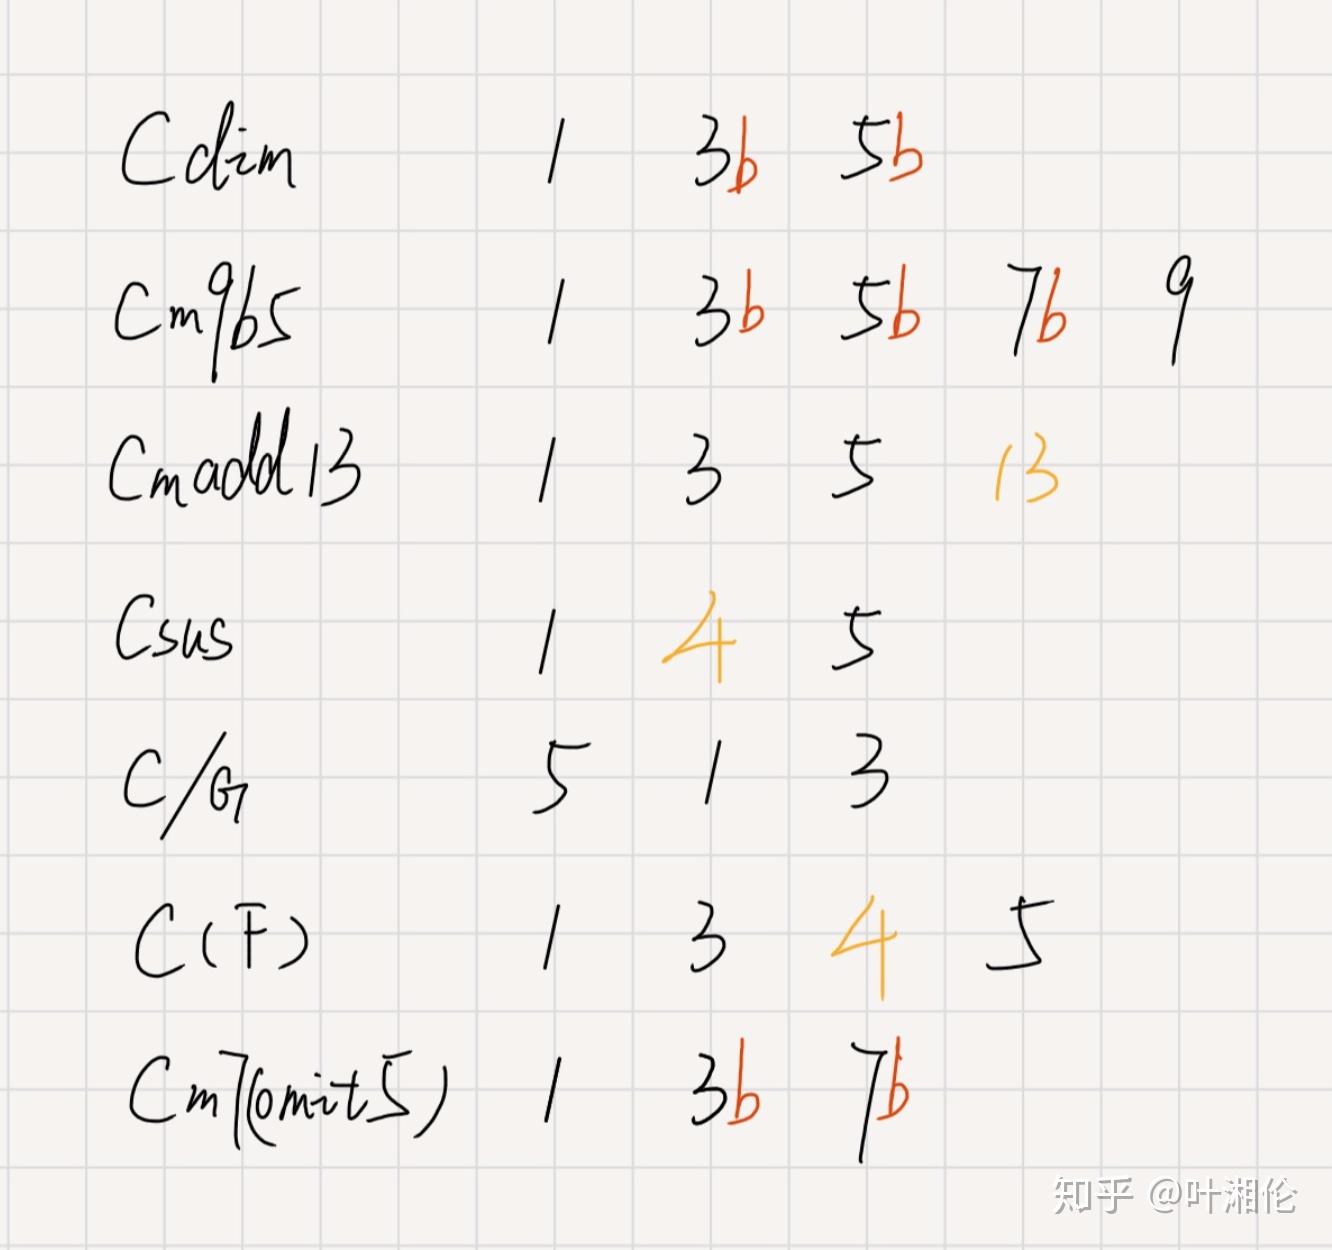 Cdim 1 3b 5b
Cm9b5 1 3b 5b 7b 9
Cmadd13 1 3 5 13
Csus 1 4 5
C/G 5 1 3
C(F) 1 3 4 5
Cm7(omit5) 1 3b 7b
知乎 @叶湘伦